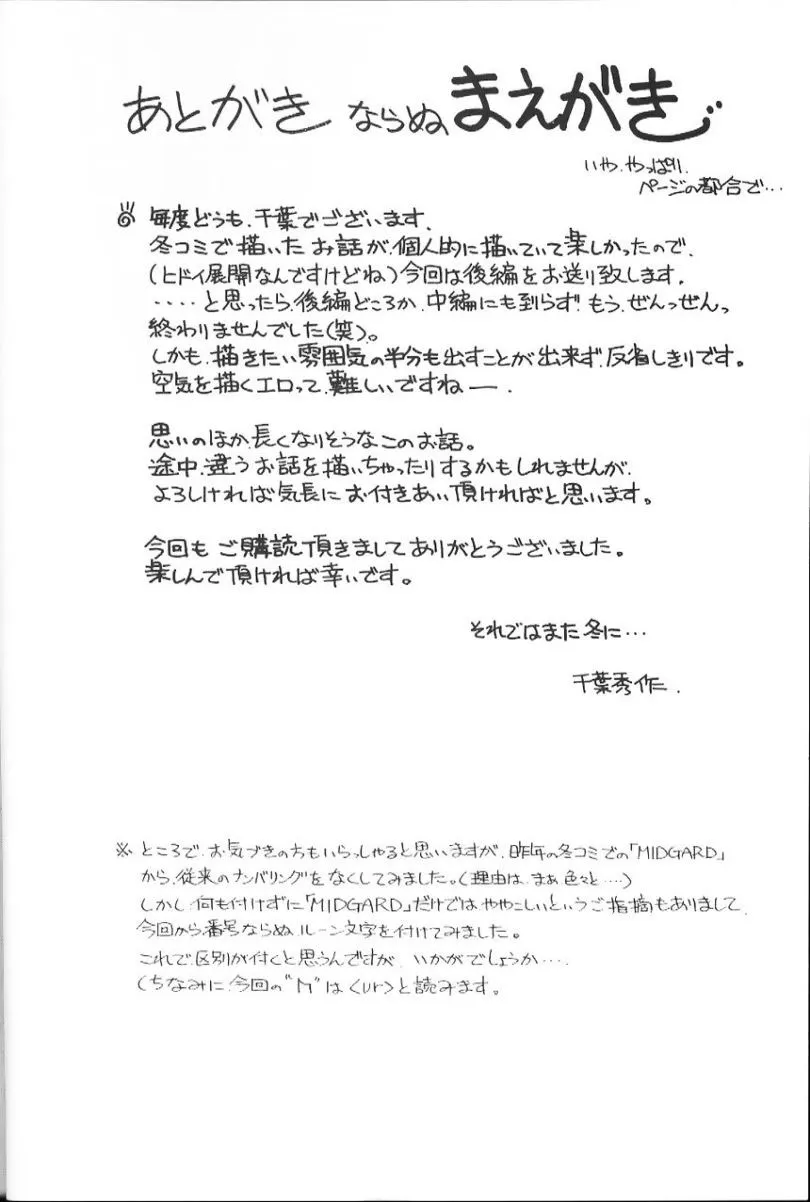 あとがき ならぬ、まえがき
いや、やっぱり、
ページの都合で…
毎度どうも、千葉でございます。
冬コミで描いた お話が、個人的に描いていて楽しかったので、
(ヒドイ展開なんですけどね)今回は後編をお送り致します。
‥‥と思ったら、後編どころか、中編にも到らず!もう、ぜんっぜんっ
終わりませんでした(笑)。
しかも、描きたい雰囲気の半分も出すことが出来ず、反省しきりです。
空気を描くエロって、難しいですねー。
思いのほか、長くなりそうなこのお話。
途中、違うお話を描いちゃったりするかもしれませんが、
よろしければ気長に お付きあい頂ければと思います。
今回も ご購読頂きましてありがとうございました。
楽しんで頂ければ幸いです。
それではまた冬に…
千葉秀作.
※ ところで、お気づきの方もいらっしゃると思いますが、昨年の冬コミでの「MIDGARD」
から、従来のナンバリングをなくしてみました。(理由は、まぁ色々と‥‥)
しかし何も付けずに「MIDGARD」だけでは ややこしいというご指摘もありまして、
今回から番号ならぬ、ルーン文字を付けてみました。
これで、区別が付くと思うんですが、いかがでしょうか‥‥
(ちなみに、今回の"ᚢ"は<ur>と読みます。